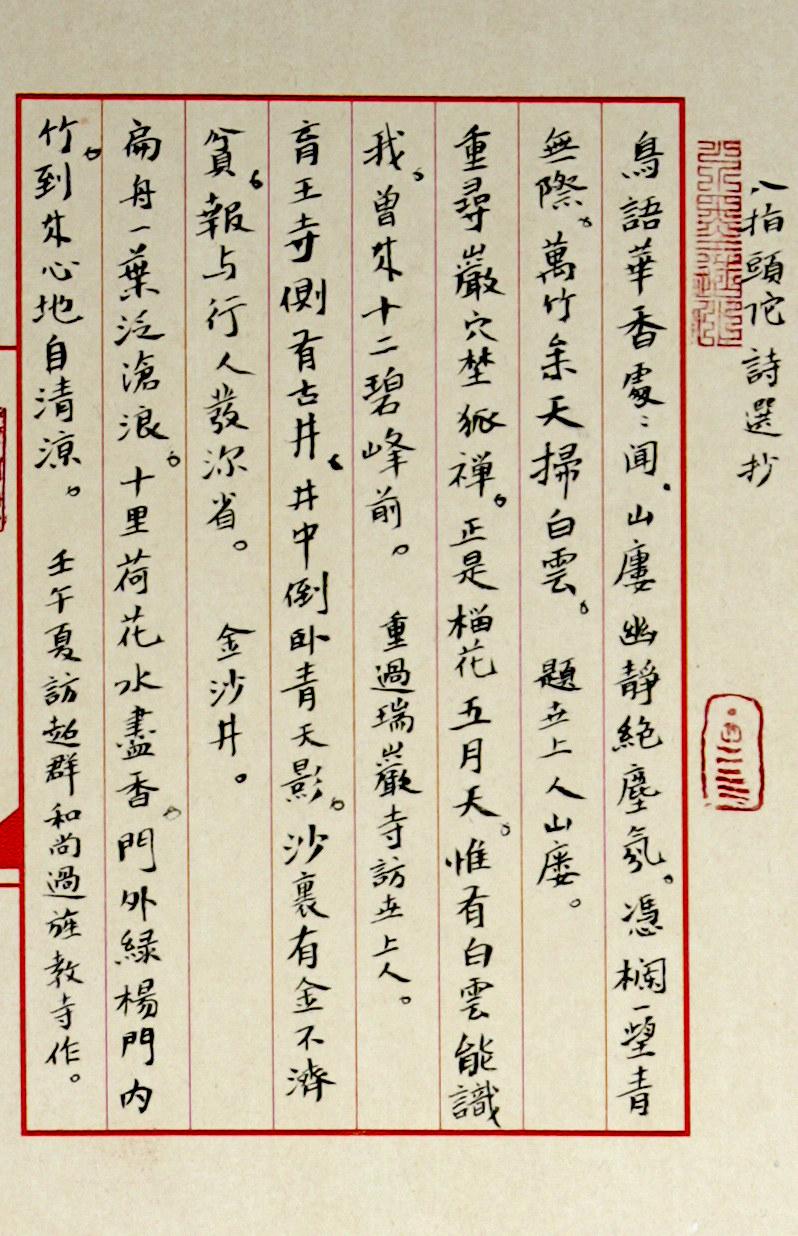 八指頭陀詩選抄
鳥語華香處々聞。山廔幽靜絶塵氛。憑欄一望青
無際。萬竹参天掃白雲。題𠀍上人山廔。
重尋巌穴埜狐禅。正是榴花五月天。惟有白雲能識
我。曾來十二碧峰前。重過瑞巌寺訪𠀍上人。
育王寺側有古井。井中倒卧青天影。沙裏有金不濟
貧。報与行人發深省。金沙井。
扁舟一葉泛滄浪。十里荷花水盡香。門外緑楊門内
竹。到來心地自清涼。壬午夏訪超群和尚過旌教寺作。